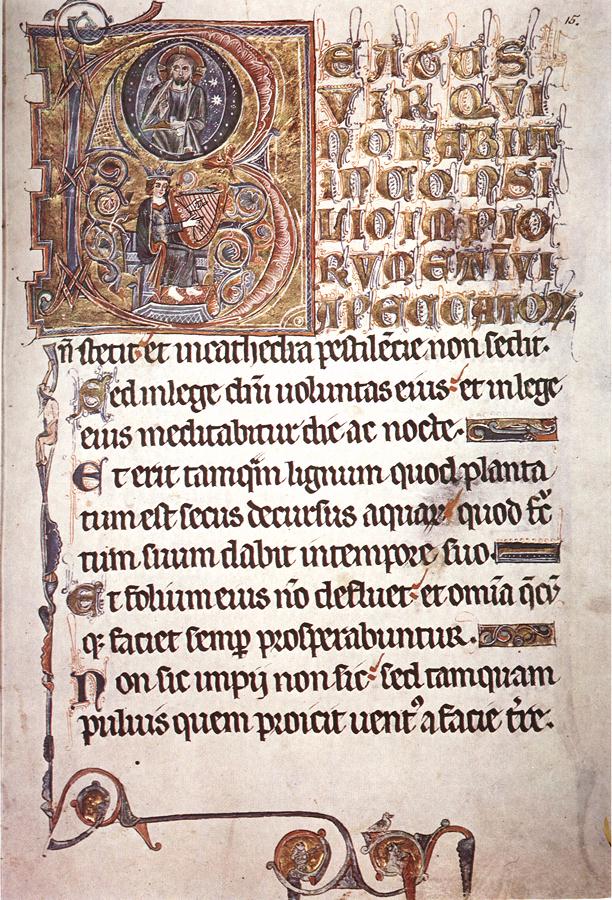 15.
BEATUS
VIR QVI
NON ABIIT
IN CONSI
LIO IMPIO
RVM ET IN VI
A PECCATOR
ñ stetit et in cathedra pestilẽtie non sedit.
Sed in lege dñi uoluntas eius et in lege
eius meditabitur die ac nocte.
Et erit tamq̃m lignum quod planta
tum est secus decursus aquaꝝ quod fc̃
tum suum dabit in tempore suo.
Et folium eius nõ defluet et omĩa q̃cũ
qꝫ faciet semꝑ prosperabuntur.
Non sic impij non sic sed tamquam
puluis quem proicit uentꝰ a facie tr̃e.